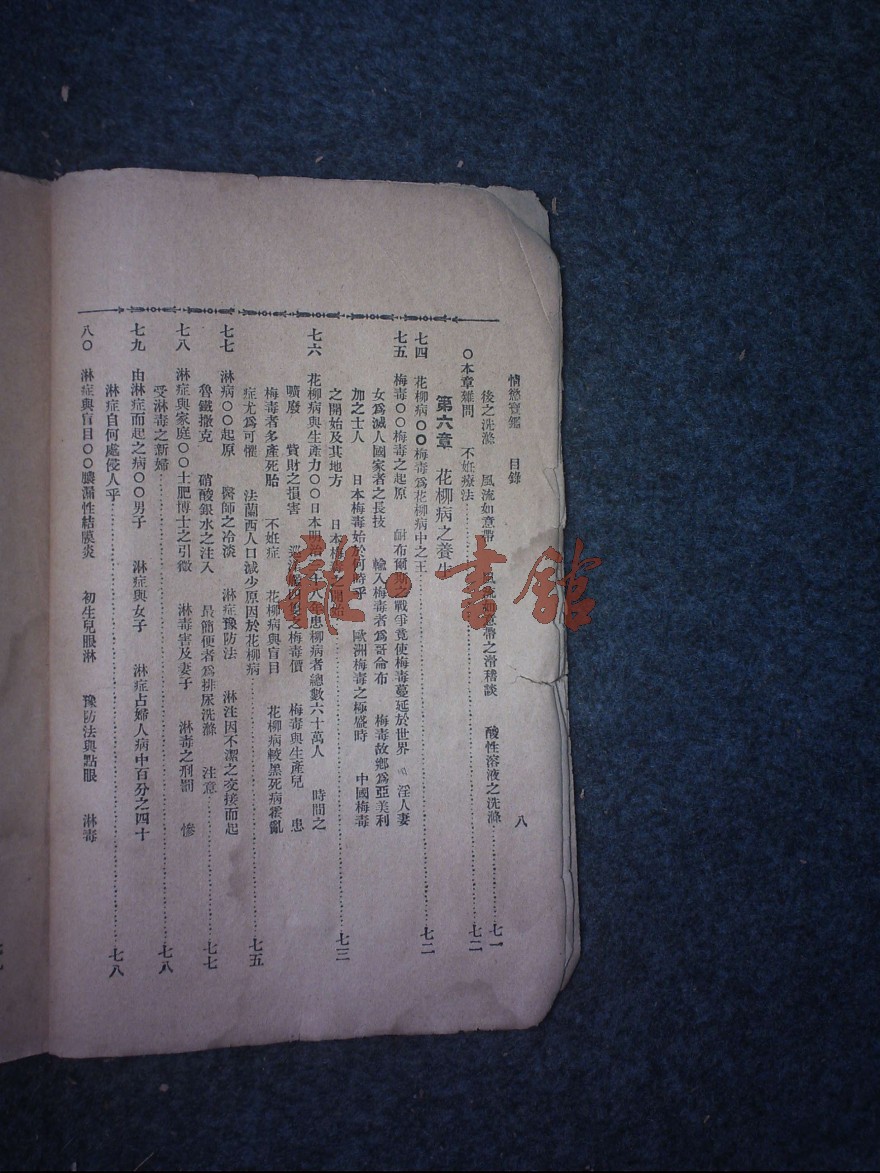 情慾寶鑑 目錄 八
後之洗滌 風流如意帶 風流如意帶之滑稽談 酸性溶液之洗滌 七一
〇本章雜問 不妊療法 七二
第六章 花柳病之養生
七四 花柳病〇〇梅毒爲花柳病中之王 七二
七五 梅毒〇〇梅毒之起原 耐布爾斯之戰爭竟使梅毒蔓延於世界 淫人妻
女爲滅人國家者之長技 輸入梅毒者爲哥侖布 梅毒故鄉爲亞美利
加之士人 日本梅毒始於何時乎 歐洲梅毒之極盛時 中國梅毒
之開始及其地方 日本梅毒之開始 七三
七六 花柳病與生產力〇〇日本明治 十八年患柳病者總數六十萬人 時間之
曠廢 貲財之損害 之梅毒價 梅毒與生產兒 患
梅毒者多產死胎 不妊症 花柳病與盲目 花柳病較黑死病霍亂
症尤爲可懼 法蘭西人口減少原因於花柳病 七五
七七 淋病〇〇起原 醫師之冷淡 淋症豫防法 淋注因不潔之交接而起
魯鐵撒克 硝酸銀水之注入 最簡便者爲排尿洗滌 注意 七七
七八 淋症與家庭〇〇土肥博士之引微 淋毒害及妻子 淋毒之刑罰 慘
受淋毒之新婦 七八
七九 由淋症而起之病〇〇男子 淋症與女子 淋症占婦人病中百分之四十
淋症自何處侵人乎 七八
八〇 淋症與盲目〇〇膿漏性結膜炎 初生兒眼淋 豫防法與點眼 淋毒
雜·書館